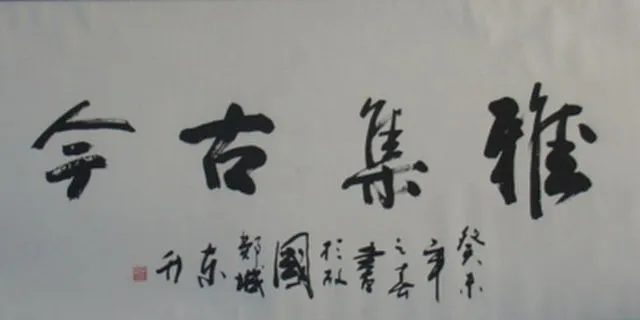 雅集古今
癸未年之春書於故國城东升